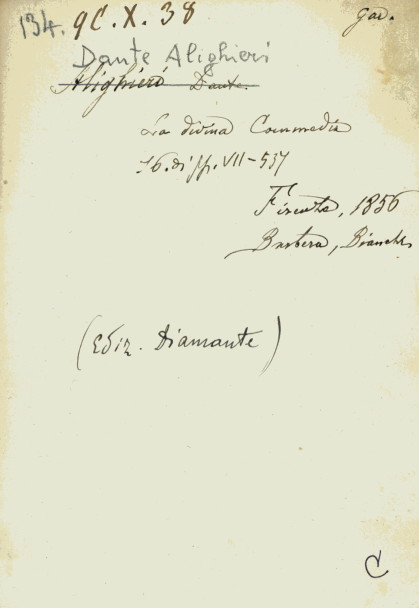 134. 9C. X. 38
Gad.
Dante Alighieri
Alighieri Dante.
La divina Commedia
16. di pp. VII-537
Firenze, 1856
Barbera, Bianchi
(Ediz. Diamante)
C